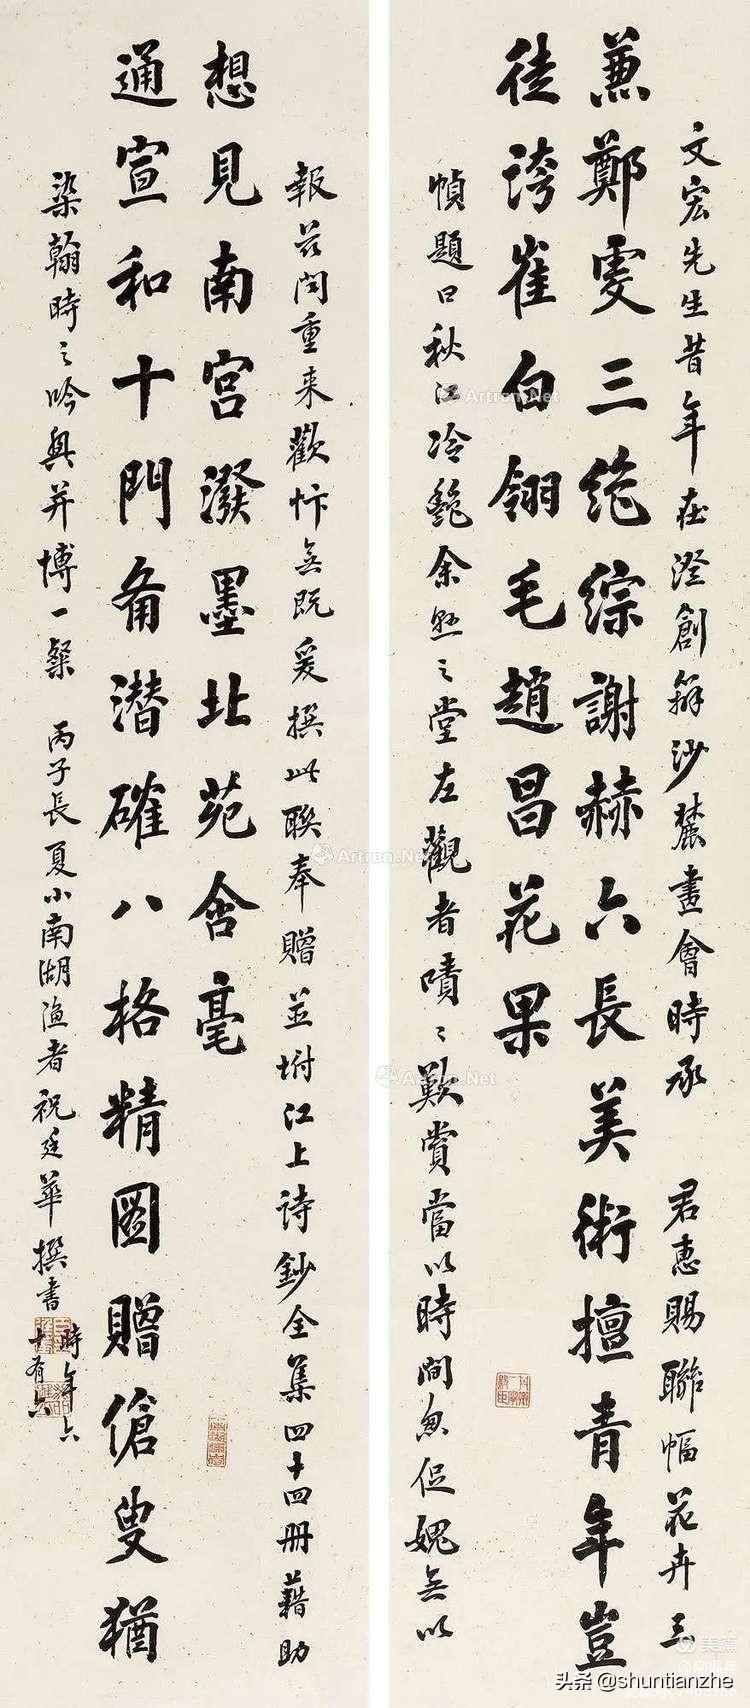 兼鄭虔三絕綜謝赫六長美術擅青年豈
徒誇崔白翎毛趙昌花果
通宣和十門備潛確八格精圖贈傖叟猶
想見南宮潑墨北苑含毫
文宏先生昔年在澄創辦沙麓畫會時承 君惠賜聯幅花卉三
幀題曰秋江冷艷余懸之堂左觀者嘖〻歎賞當以時間匆促媿無以
報茲聞重来歡忭無既爰撰此聯奉贈並坿江上詩鈔全集四十四冊藉助
染翰時之吟興并博一粲 丙子長夏小南湖漁者祝廷華撰書
時年六
十有六
Artron.Net
Artron.Net
Artron.Net
美篇
头条 @shuntianzhe